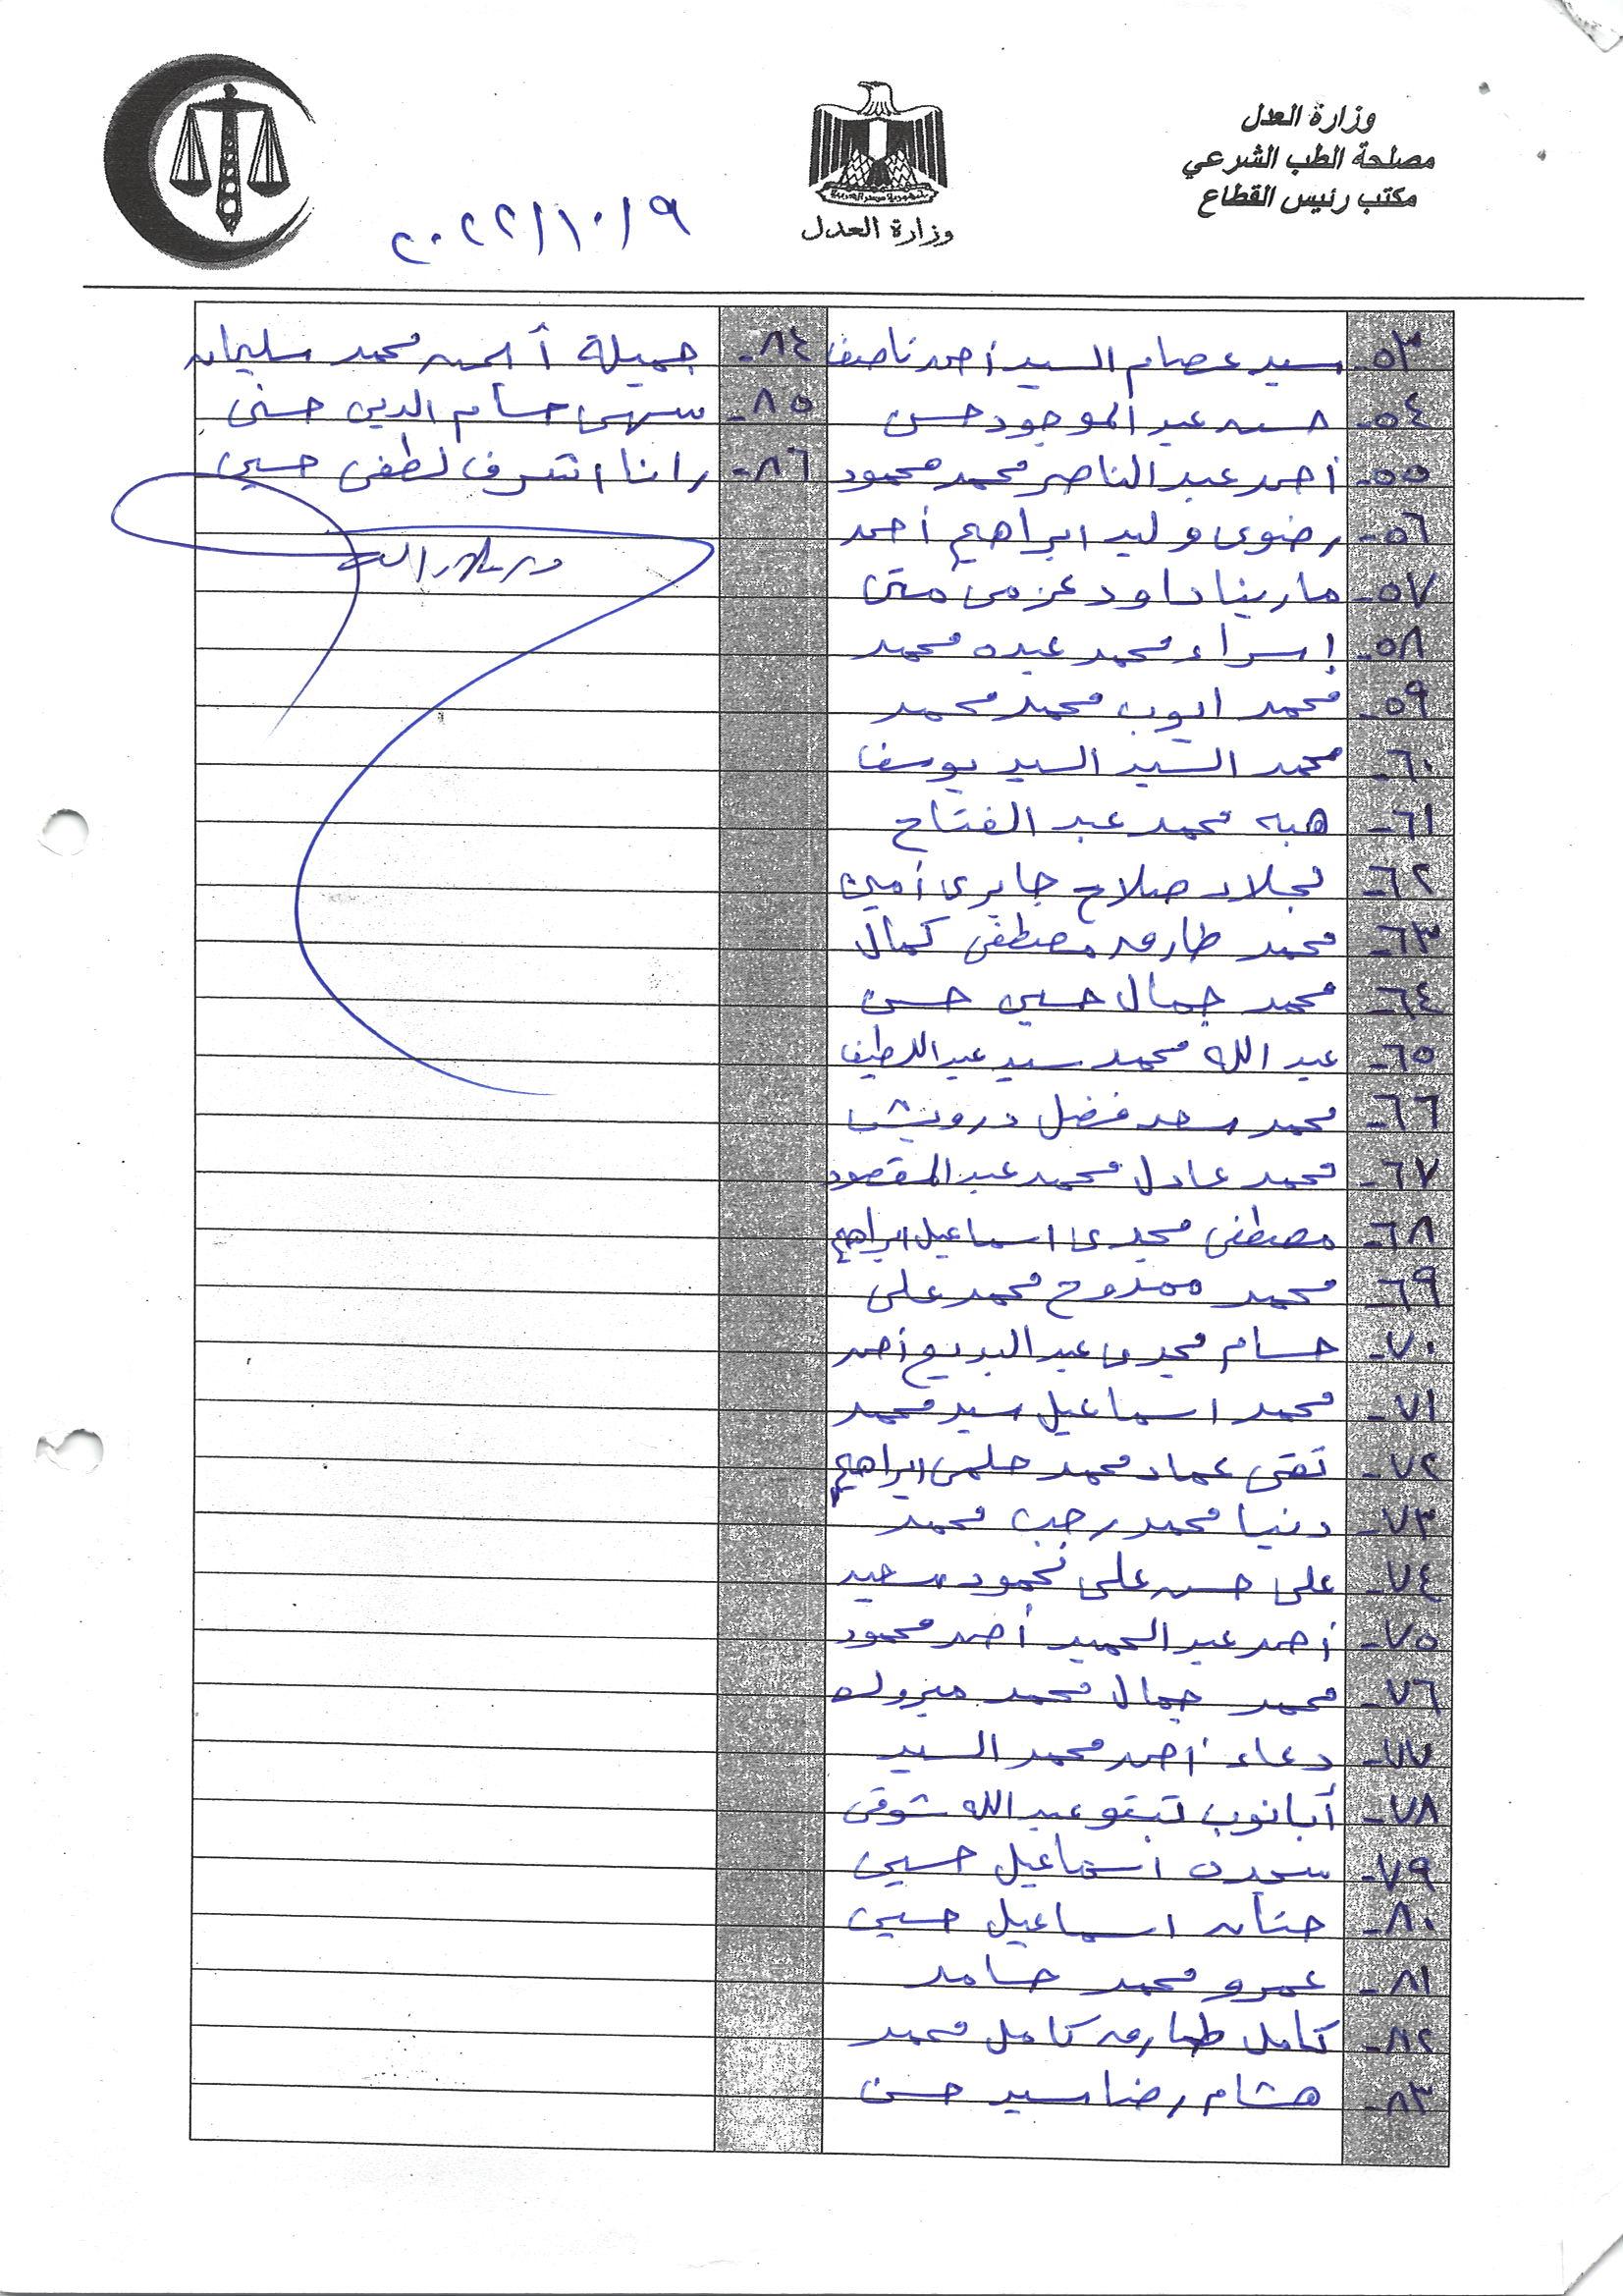 وزارة العدل
مصلحة الطب الشرعي
مكتب رئيس القطاع
وزارة العدل
٢٠٢٢/١٠/٩
٥٣- سيد عصام السيد أحمد ناصف
٥٤- حسن عبد الموجود حسن
٥٥- أحمد عبد الناصر محمد محمود
٥٦- رضوى وليد ابراهيم أحمد
٥٧- مارينا داود عزمى متى
٥٨- إسراء محمد عبده محمد
٥٩- محمد ايوب محمد محمد
٦٠- محمد السيد السيد يوسف
٦١- هبه محمد عبد الفتاح
٦٢- نجلاء صلاح جابرى أمين
٦٣- محمد طارق مصطفى كمال
٦٤- محمد جمال حسين حسن
٦٥- عبد الله محمد سيد عبد اللطيف
٦٦- محمد سعد فضل درويش
٦٧- محمد عادل محمد عبد المقصود
٦٨- مصطفى مجدى اسماعيل ابراهيم
٦٩- محمد ممدوح محمد على
٧٠- حسام مجدى عبد البديع أحمد
٧١- محمد اسماعيل سيد محمد
٧٢- تقى عماد محمد حلمى ابراهيم
٧٣- دنيا محمد رجب محمد
٧٤- على حسن على محمود سعيد
٧٥- أحمد عبد الحميد أحمد محمود
٧٦- محمد جمال محمد مبروك
٧٧- دعاء أحمد محمد السيد
٧٨- أبانوب عبد الله شوقى
٧٩- اسماعيل حسين
٨٠- حنان اسماعيل حسين
٨١- عمرو محمد حامد
٨٢- كامل طارق كامل محمد
٨٣- هشام رضا سيد حسن
٨٤- جميلة أيمن محمد سليمان
٨٥- سهى حسام الدين حسنى
٨٦- رانا اشرف لطفى حسين